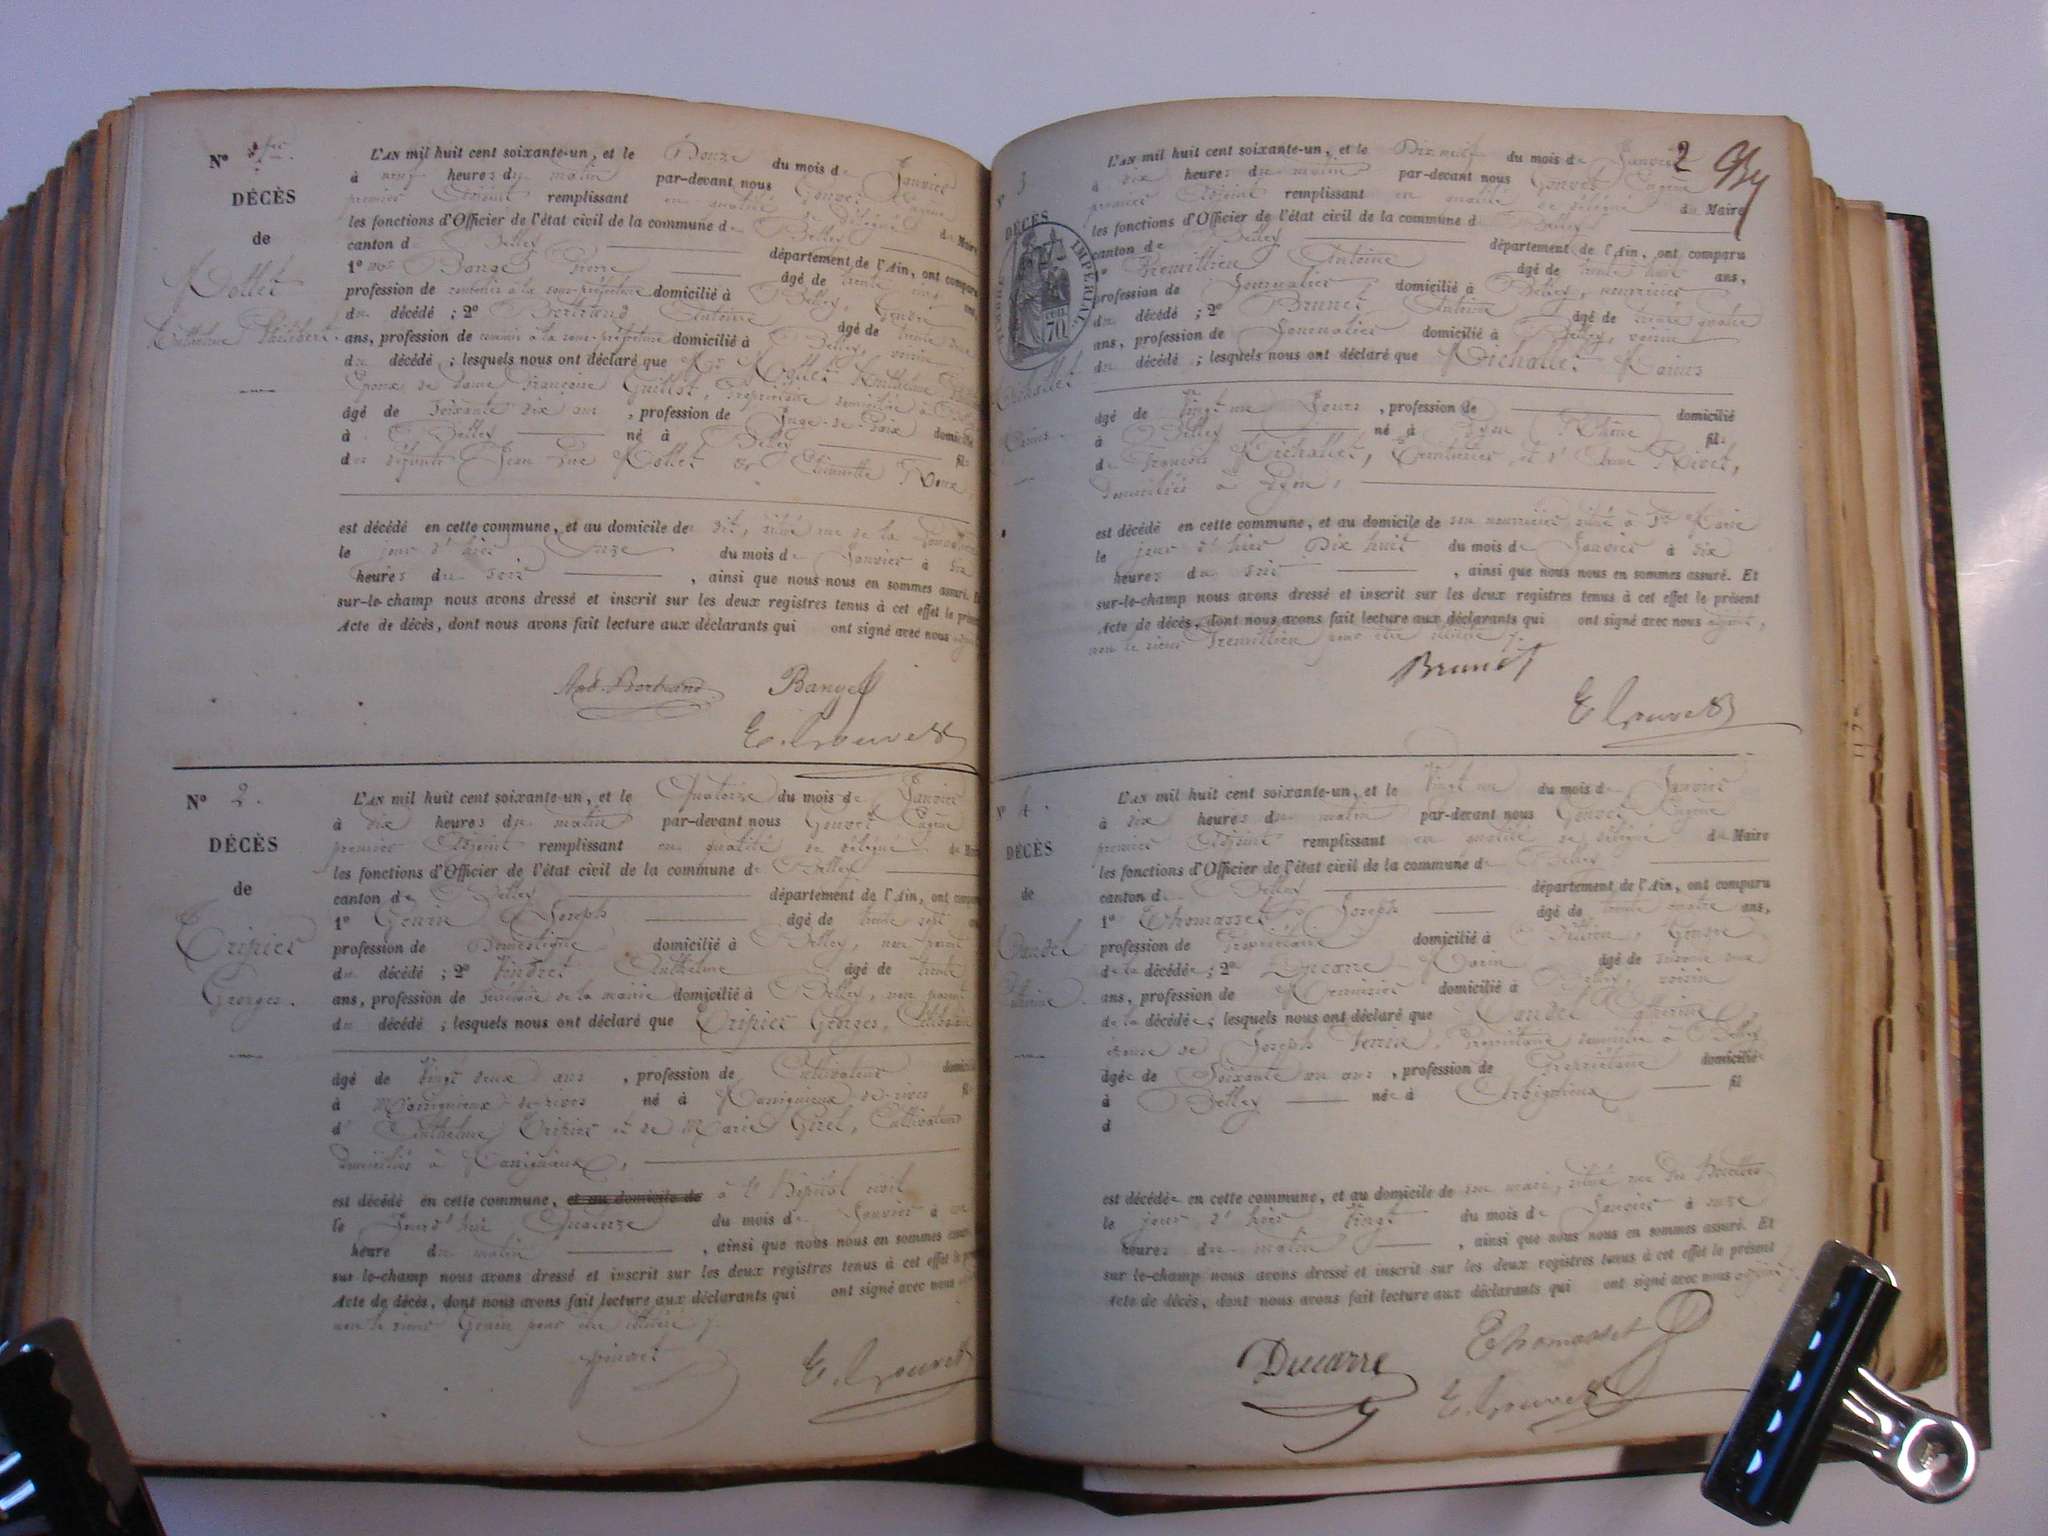 N° 1er
DÉCÈS
de
Mollet
Anthelme Philibert
L'AN mil huit cent soixante-un, et le Douze du mois de Janvier
à neuf heures du matin par-devant nous Gouvet Eugène
premier Adjoint remplissant en qualité de délégué du Maire
les fonctions d'Officier de l'état civil de la commune de Belley
canton de Belley département de l'Ain, ont comparu
1° Mr Banget Pierre âgé de trente cinq ans,
profession de à la sous-préfecture domicilié à Belley, Gendre
du décédé ; 2° Bertrand Antoine âgé de trente
ans, profession de commis à la sous-préfecture domicilié à Belley, voisin
du décédé ; lesquels nous ont déclaré que Mr Mollet Anthelme
époux de Dame Françoise Guillot, Propriétaire domiciliée à
âgé de Soixante dix ans, profession de Juge-de-Paix domicilié
à Belley né à Belley fils
des défunts Jean Mollet et Roux,
est décédé en cette commune, et au domicile de dit, situé rue de la
le jour d'hier Onze du mois de Janvier à six
heures du soir, ainsi que nous nous en sommes assuré. Et
sur-le-champ nous avons dressé et inscrit sur les deux registres tenus à cet effet le présent
Acte de décès, dont nous avons fait lecture aux déclarants qui ont signé avec nous adjoint
Ant. Bertrand Banget
E. Gouvet
N° 2.
DÉCÈS
de
Tripier
Georges.
L'AN mil huit cent soixante-un, et le Quatorze du mois de Janvier
à dix heures du matin par-devant nous Gouvet Eugène
premier Adjoint remplissant en qualité de délégué du Maire
les fonctions d'Officier de l'état civil de la commune de Belley
canton de Belley département de l'Ain, ont comparu
1° Genin Joseph âgé de trente sept ans
profession de Domestique domicilié à Belley, non parent
du décédé ; 2° Vindret Anthelme âgé de trente
ans, profession de Secrétaire de la mairie domicilié à Belley, non parent
du décédé ; lesquels nous ont déclaré que Tripier Georges, Célibataire
âgé de Vingt deux ans, profession de Cultivateur domicilié
à Massignieux-de-rives né à Massignieux-de-rives fils
d'Anthelme Tripier et de Marie Girel, Cultivateurs
domiciliés à Massignieux,
est décédé en cette commune, et au domicile de à l'Hôpital civil
le Jourd'hui Quatorze du mois de Janvier à une
heure du matin, ainsi que nous nous en sommes assuré. Et
sur-le-champ nous avons dressé et inscrit sur les deux registres tenus à cet effet le présent
Acte de décès, dont nous avons fait lecture aux déclarants qui ont signé avec nous
non le sieur Genin pour être illitéré ./.
Vindret E. Gouvet
2
N° 3
DÉCÈS
TIMBRE IMPÉRIAL
70
Michallet
Marius
L'AN mil huit cent soixante-un, et le Dix neuf du mois de Janvier
à dix heures du matin par-devant nous Gouvet Eugène
premier Adjoint remplissant en qualité de délégué du Maire
les fonctions d'Officier de l'état civil de la commune de Belley
canton de Belley département de l'Ain, ont comparu
1° Fremillieu Antoine âgé de trente huit ans,
profession de Journalier domicilié à Belley, nourricier
du décédé ; 2° Brunet Antoine âgé de trente quatre
ans, profession de Journalier domicilié à Belley, voisin
du décédé ; lesquels nous ont déclaré que Michallet Marius
âgé de Vingt un Jours, profession de domicilié
à Belley né à Lyon (Rhône) fils
de François Michallet, Teinturier, et d'Anne Rivet,
domiciliés à Lyon,
est décédé en cette commune, et au domicile de son nourricier situé à Ste Marie
le jour d'hier Dix huit du mois de Janvier à six
heures du soir, ainsi que nous nous en sommes assuré. Et
sur-le-champ nous avons dressé et inscrit sur les deux registres tenus à cet effet le présent
Acte de décès, dont nous avons fait lecture aux déclarants qui ont signé avec nous adjoint,
non le sieur Fremillieu pour être illitéré ./.
Brunet
E Gouvet
N° 4.
DÉCÈS
de
L'AN mil huit cent soixante-un, et le Vingt un du mois de Janvier
à dix heures du matin par-devant nous Gouvet Eugène
premier Adjoint remplissant en qualité de délégué du Maire
les fonctions d'Officier de l'état civil de la commune de Belley
canton de Belley département de l'Ain, ont comparu
1° Thomasset Joseph âgé de trente quatre ans,
profession de Propriétaire domicilié à, Gendre
de la décédée ; 2° Ducarre Marin âgé de soixante
ans, profession de Menuisier domicilié à Belley, voisin
de la décédée ; lesquels nous ont déclaré que Catherine,
épouse de Joseph, Propriétaire domiciliée à Belley
âgée de Soixante un ans, profession de Propriétaire domiciliée
à Belley née à Arbignieu fil
d
est décédée en cette commune, et au domicile de son mari, situé rue des
le jour d'hier Vingt du mois de Janvier à onze
heures du matin, ainsi que nous nous en sommes assuré. Et
sur-le-champ nous avons dressé et inscrit sur les deux registres tenus à cet effet le présent
Acte de décès, dont nous avons fait lecture aux déclarants qui ont signé avec nous adjoint ./.
Thomasset
Ducarre
E. Gouvet